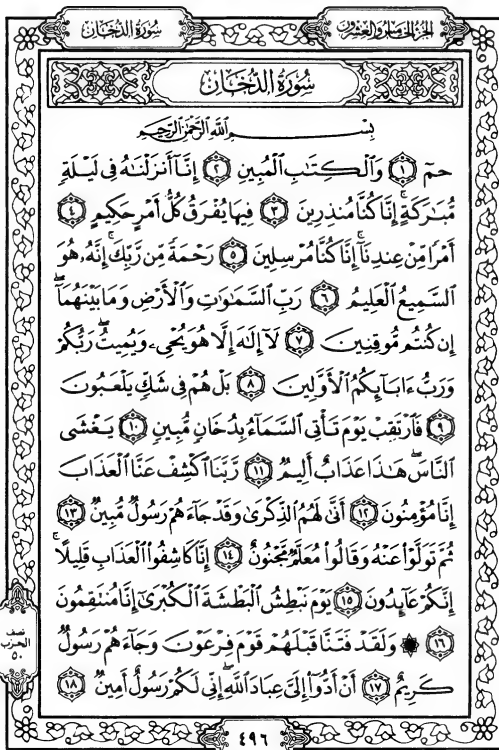 الجزء الخامس والعشرون
سُورَةُ الدُّخَانِ
سُورَةُ الدُّخَانِ
بِسْمِ ٱللَّهِ ٱلرَّحْمَٰنِ ٱلرَّحِيمِ
حمٓ ١ وَٱلْكِتَٰبِ ٱلْمُبِينِ ٢ إِنَّآ أَنزَلْنَٰهُ فِى لَيْلَةٍ
مُّبَٰرَكَةٍ ۚ إِنَّا كُنَّا مُنذِرِينَ ٣ فِيهَا يُفْرَقُ كُلُّ أَمْرٍ حَكِيمٍ ٤
أَمْرًا مِّنْ عِندِنَآ ۚ إِنَّا كُنَّا مُرْسِلِينَ ٥ رَحْمَةً مِّن رَّبِّكَ ۚ إِنَّهُۥ هُوَ
ٱلسَّمِيعُ ٱلْعَلِيمُ ٦ رَبِّ ٱلسَّمَٰوَٰتِ وَٱلْأَرْضِ وَمَا بَيْنَهُمَآ ۖ
إِن كُنتُم مُّوقِنِينَ ٧ لَآ إِلَٰهَ إِلَّا هُوَ يُحْىِۦ وَيُمِيتُ ۖ رَبُّكُمْ
وَرَبُّ ءَابَآئِكُمُ ٱلْأَوَّلِينَ ٨ بَلْ هُمْ فِى شَكٍّ يَلْعَبُونَ
٩ فَٱرْتَقِبْ يَوْمَ تَأْتِى ٱلسَّمَآءُ بِدُخَانٍ مُّبِينٍ ١٠ يَغْشَى
ٱلنَّاسَ ۖ هَٰذَا عَذَابٌ أَلِيمٌ ١١ رَّبَّنَا ٱكْشِفْ عَنَّا ٱلْعَذَابَ
إِنَّا مُؤْمِنُونَ ١٢ أَنَّىٰ لَهُمُ ٱلذِّكْرَىٰ وَقَدْ جَآءَهُمْ رَسُولٌ مُّبِينٌ ١٣
ثُمَّ تَوَلَّوْا۟ عَنْهُ وَقَالُوا۟ مُعَلَّمٌ مَّجْنُونٌ ١٤ إِنَّا كَاشِفُوا۟ ٱلْعَذَابِ قَلِيلًا ۚ
إِنَّكُمْ عَآئِدُونَ ١٥ يَوْمَ نَبْطِشُ ٱلْبَطْشَةَ ٱلْكُبْرَىٰٓ إِنَّا مُنتَقِمُونَ
١٦ ۞ وَلَقَدْ فَتَنَّا قَبْلَهُمْ قَوْمَ فِرْعَوْنَ وَجَآءَهُمْ رَسُولٌ
كَرِيمٌ ١٧ أَنْ أَدُّوٓا۟ إِلَىَّ عِبَادَ ٱللَّهِ ۖ إِنِّى لَكُمْ رَسُولٌ أَمِينٌ ١٨
نصف
الحزب
٥٠
٤٩٦